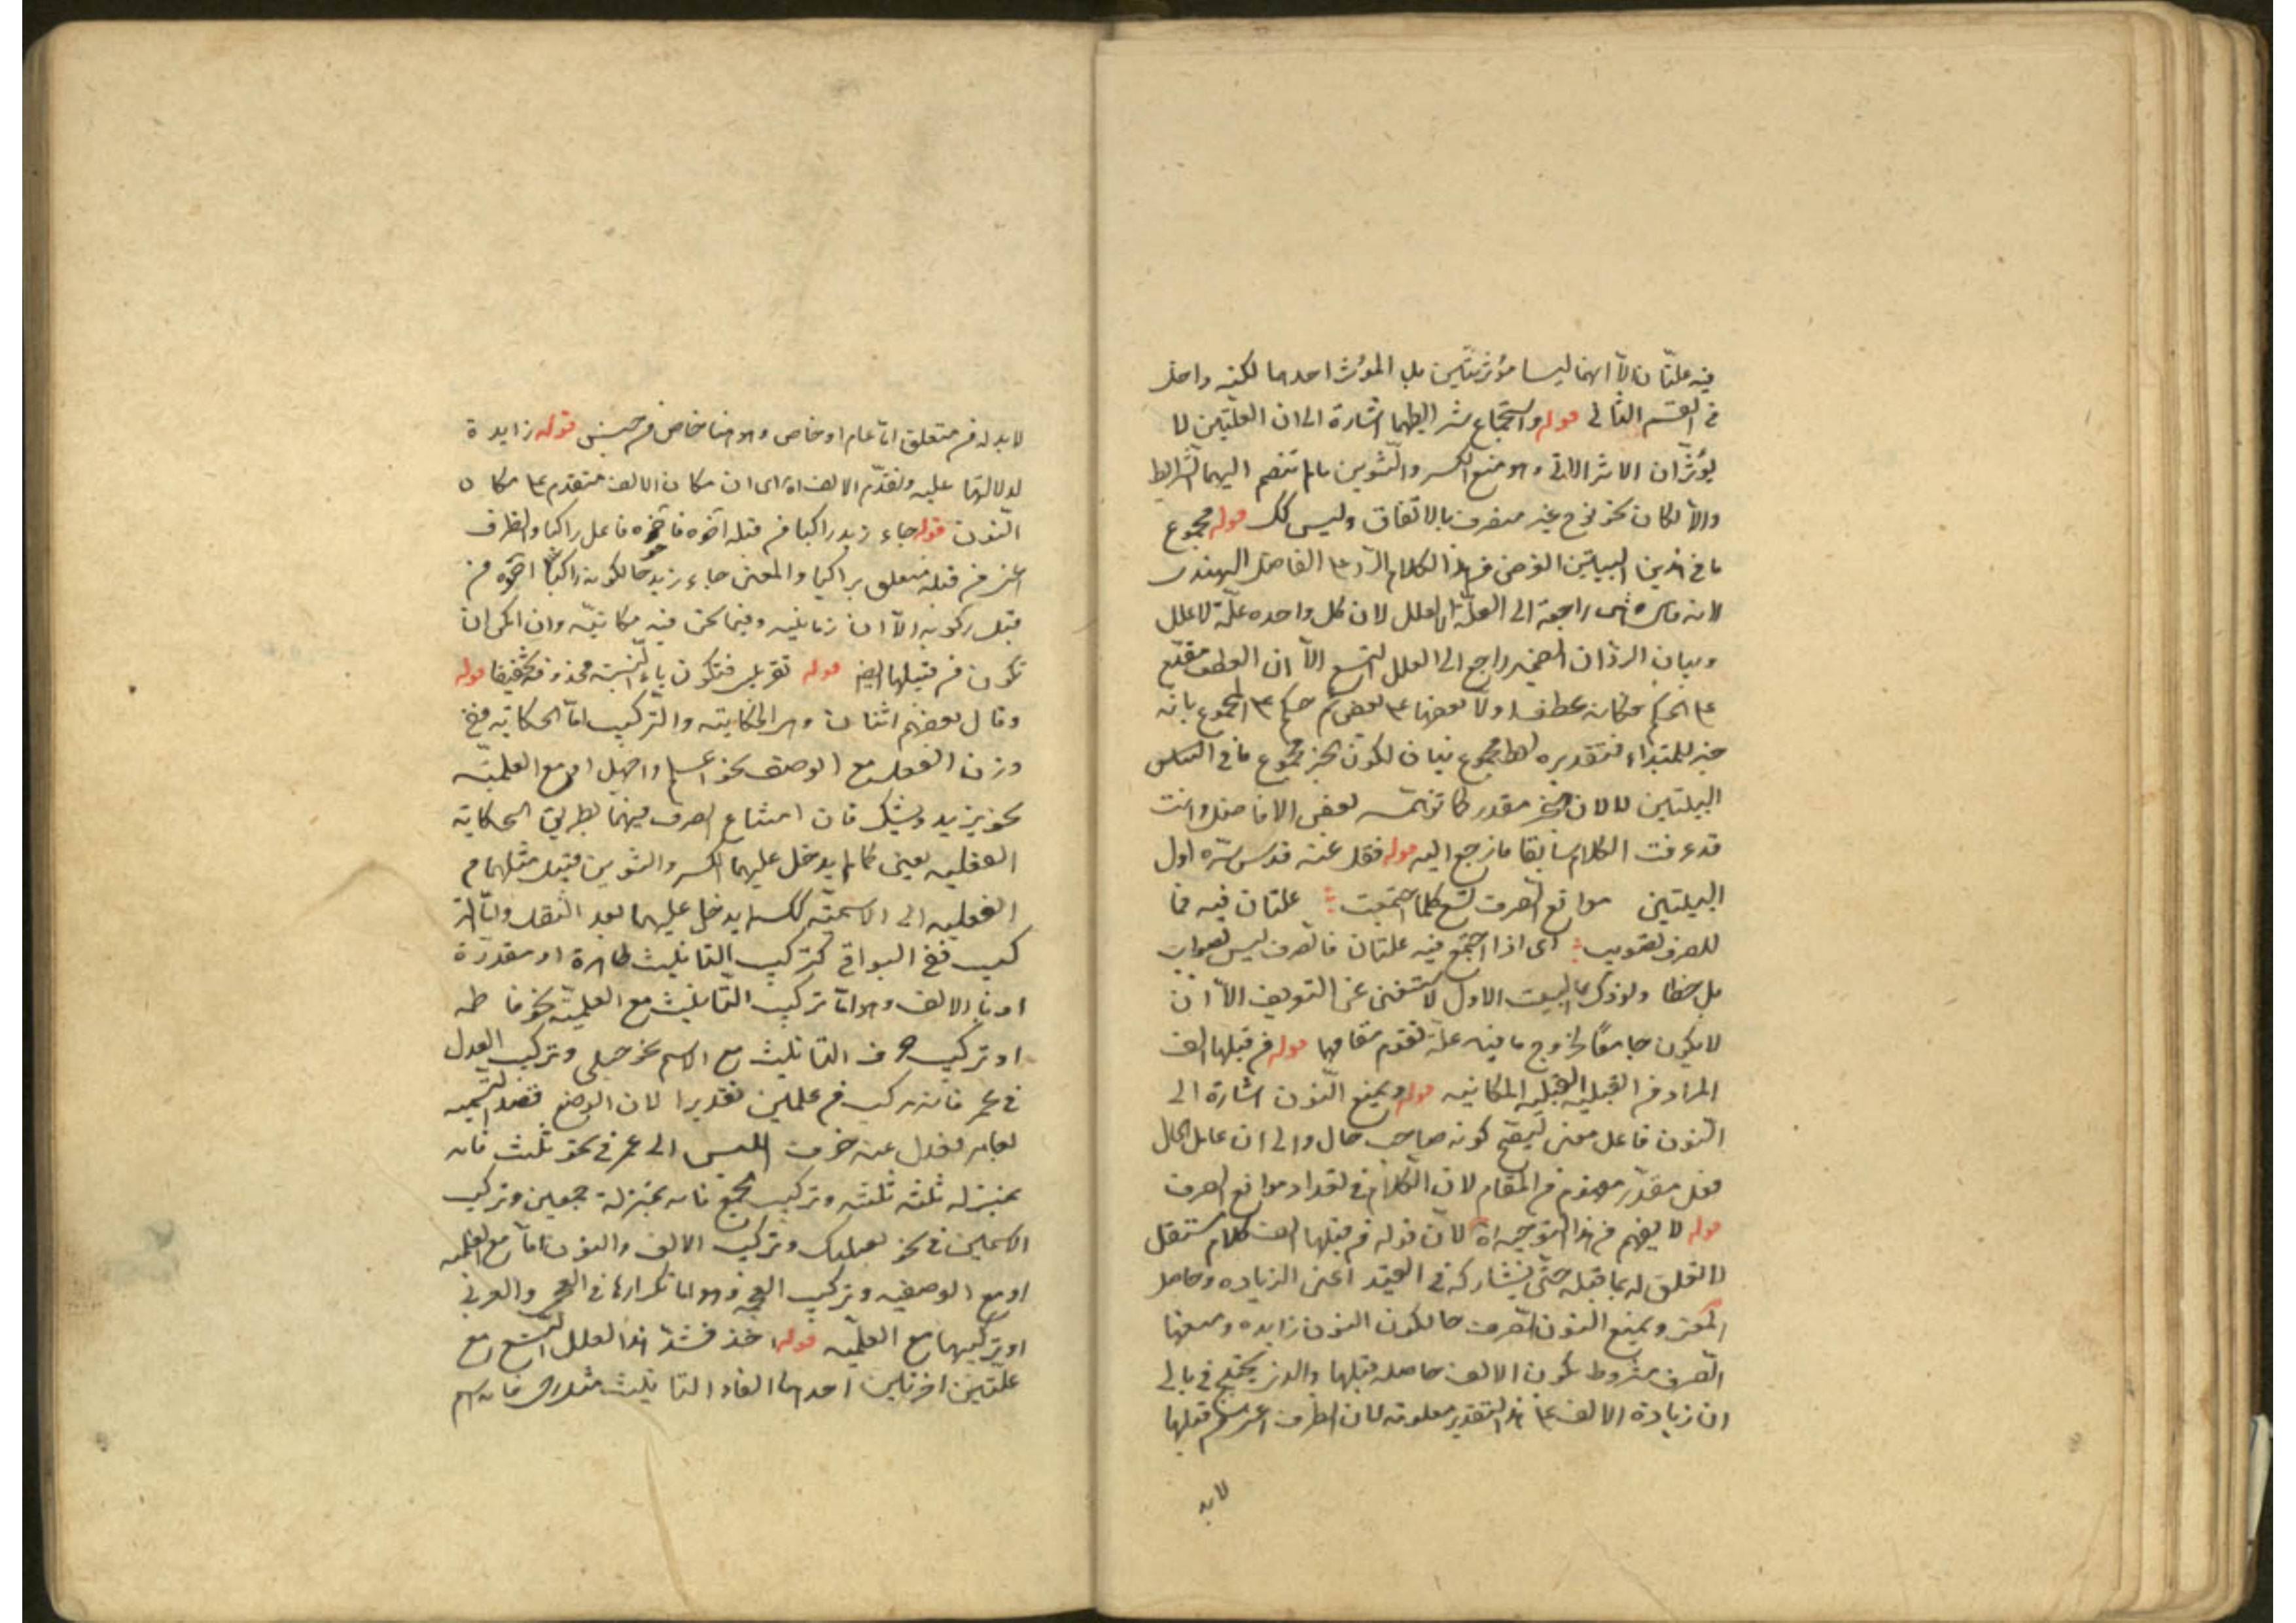 فيه علتان الا انهما ليسا مؤثرتين بل المؤثر احدهما لكنه داخل
في القسم الثاني قوله واستجماع شرايطهما اشارة الى ان العلتين لا
يؤثران الاثر الاتي وهو منع الكسر والتنوين ما لم تنضم اليهما الشرايط
والا لكان نحو نوح غير منصرف بالاتفاق وليس كك قوله مجموع
ما في هذين البيتين الغرض من هذا الكلام الرد على الفاضل الهندى
لانه هي راجعة الى العلة لا العلل لان كل واحده علة لا علل
وبيان الرد ان الضمير راجع الى العلل التسع الا ان العطف مقدم
على الحكم فكانه عطف اولا بعضها على بعض ثم حكم على المجموع بانه
خبر للمبتداء فتقديره لفظ مجموع بيان لكون الخبر مجموع ما في
البيتين لا لان الخبر مقدر كما توهمه بعض الافاضل وانت
قد عرفت الكلام سابقا فارجع اليه قوله فقل عنه قدس سره اول
البيتين موانع الصرف تسع كلما اجتمعت علتان فيه فما
للصرف تصويب اى اذا اجتمع فيه علتان فالصرف ليس بصواب
بل خطا ولو ذكر البيت الاول لاستغنى عن التعريف الا ان
لا يكون جامعا لخروج ما فيه علة تقوم مقامهما قوله من قبلها الف
المراد من القبلية القبلية المكانيه قوله ويمنع النون اشارة الى
النون فاعل معنى ليصح كونه صاحب حال والى ان عامل الحال
فعل مقدر مفهوم من المقام لان الكلام في تعداد موانع الصرف
قوله لا يفهم من هذا التوجيه اه لان قوله من قبلها الف كلام مستقل
لا تعلق له بما قبله حتى يشاركه في القيد اعنى الزياده وحاصل
المعنى ويمنع النون الصرف حالكون النون زايده ومنعها
الصرف مشروط بكون الالف حاصله قبلها والذى يختلج في بالي
ان زيادة الالف على هذا التقدير معلومة لان الظرف اعنى من قبلها
لا بد
لا بد له من متعلق اما عام او خاص وهو هنا خاص من جنس قوله زايدة
لدلالتها عليه وتقدم الالف اه اى ان مكان الالف متقدم على مكان
النون قوله جاء زيد راكبا من قبله اخوه فاخوه فاعل راكبا والظرف
اعنى من قبله متعلق براكبا والمعنى جاء زيد حالكونه راكبا اخوه من
قبل ركوبه الا ان زمانيه وفيما نحن فيه مكانيه وان امكن ان
تكون من قبيلها ايضا قوله تقريبى فتكون ياء النسبة محذوفة تخفيفا قوله
وقال بعضهم اثنان وهى الحكاية والتركيب اما الحكاية ففي
وزن الفعل مع الوصف نحو اعلم واجهل او مع العلمية
نحو يزيد ويشكر فان امتناع الصرف فيهما بطريق الحكاية
الفعليه يعنى كما لم يدخل عليهما الكسر والتنوين قبل نقلهما من
الفعليه الى الاسميه كك لم يدخل عليهما بعد النقل واما التر
كيب ففي البواقي كتركيب التانيث ظاهرة او مقدرة
او بالالف وهو اما تركيب التانيث مع العلمية نحو فاطمه
او تركيب حرف التانيث مع الاسم نحو حبلى وتركيب العدل
في عمر فانه تركيب من علمين تقديرا لان الواضع قصد التسمية
بعامر فعدل عنه خوف اللبس الى عمر في نحو ثلث فانه
بمنزله ثلثة ثلثة وتركيب جمع فانه بمنزلة جمعين وتركيب
الاسمين في نحو بعلبك وتركيب الالف والنون اما مع العلمية
او مع الوصفيه وتركيب العجمة وهو اما تكرارها في العجم والعربي
او تركيبها مع العلمية قوله اخذ فشد هذا العلل التسع مع
علتين اخرتين احدهما الفاء التانيث مثل